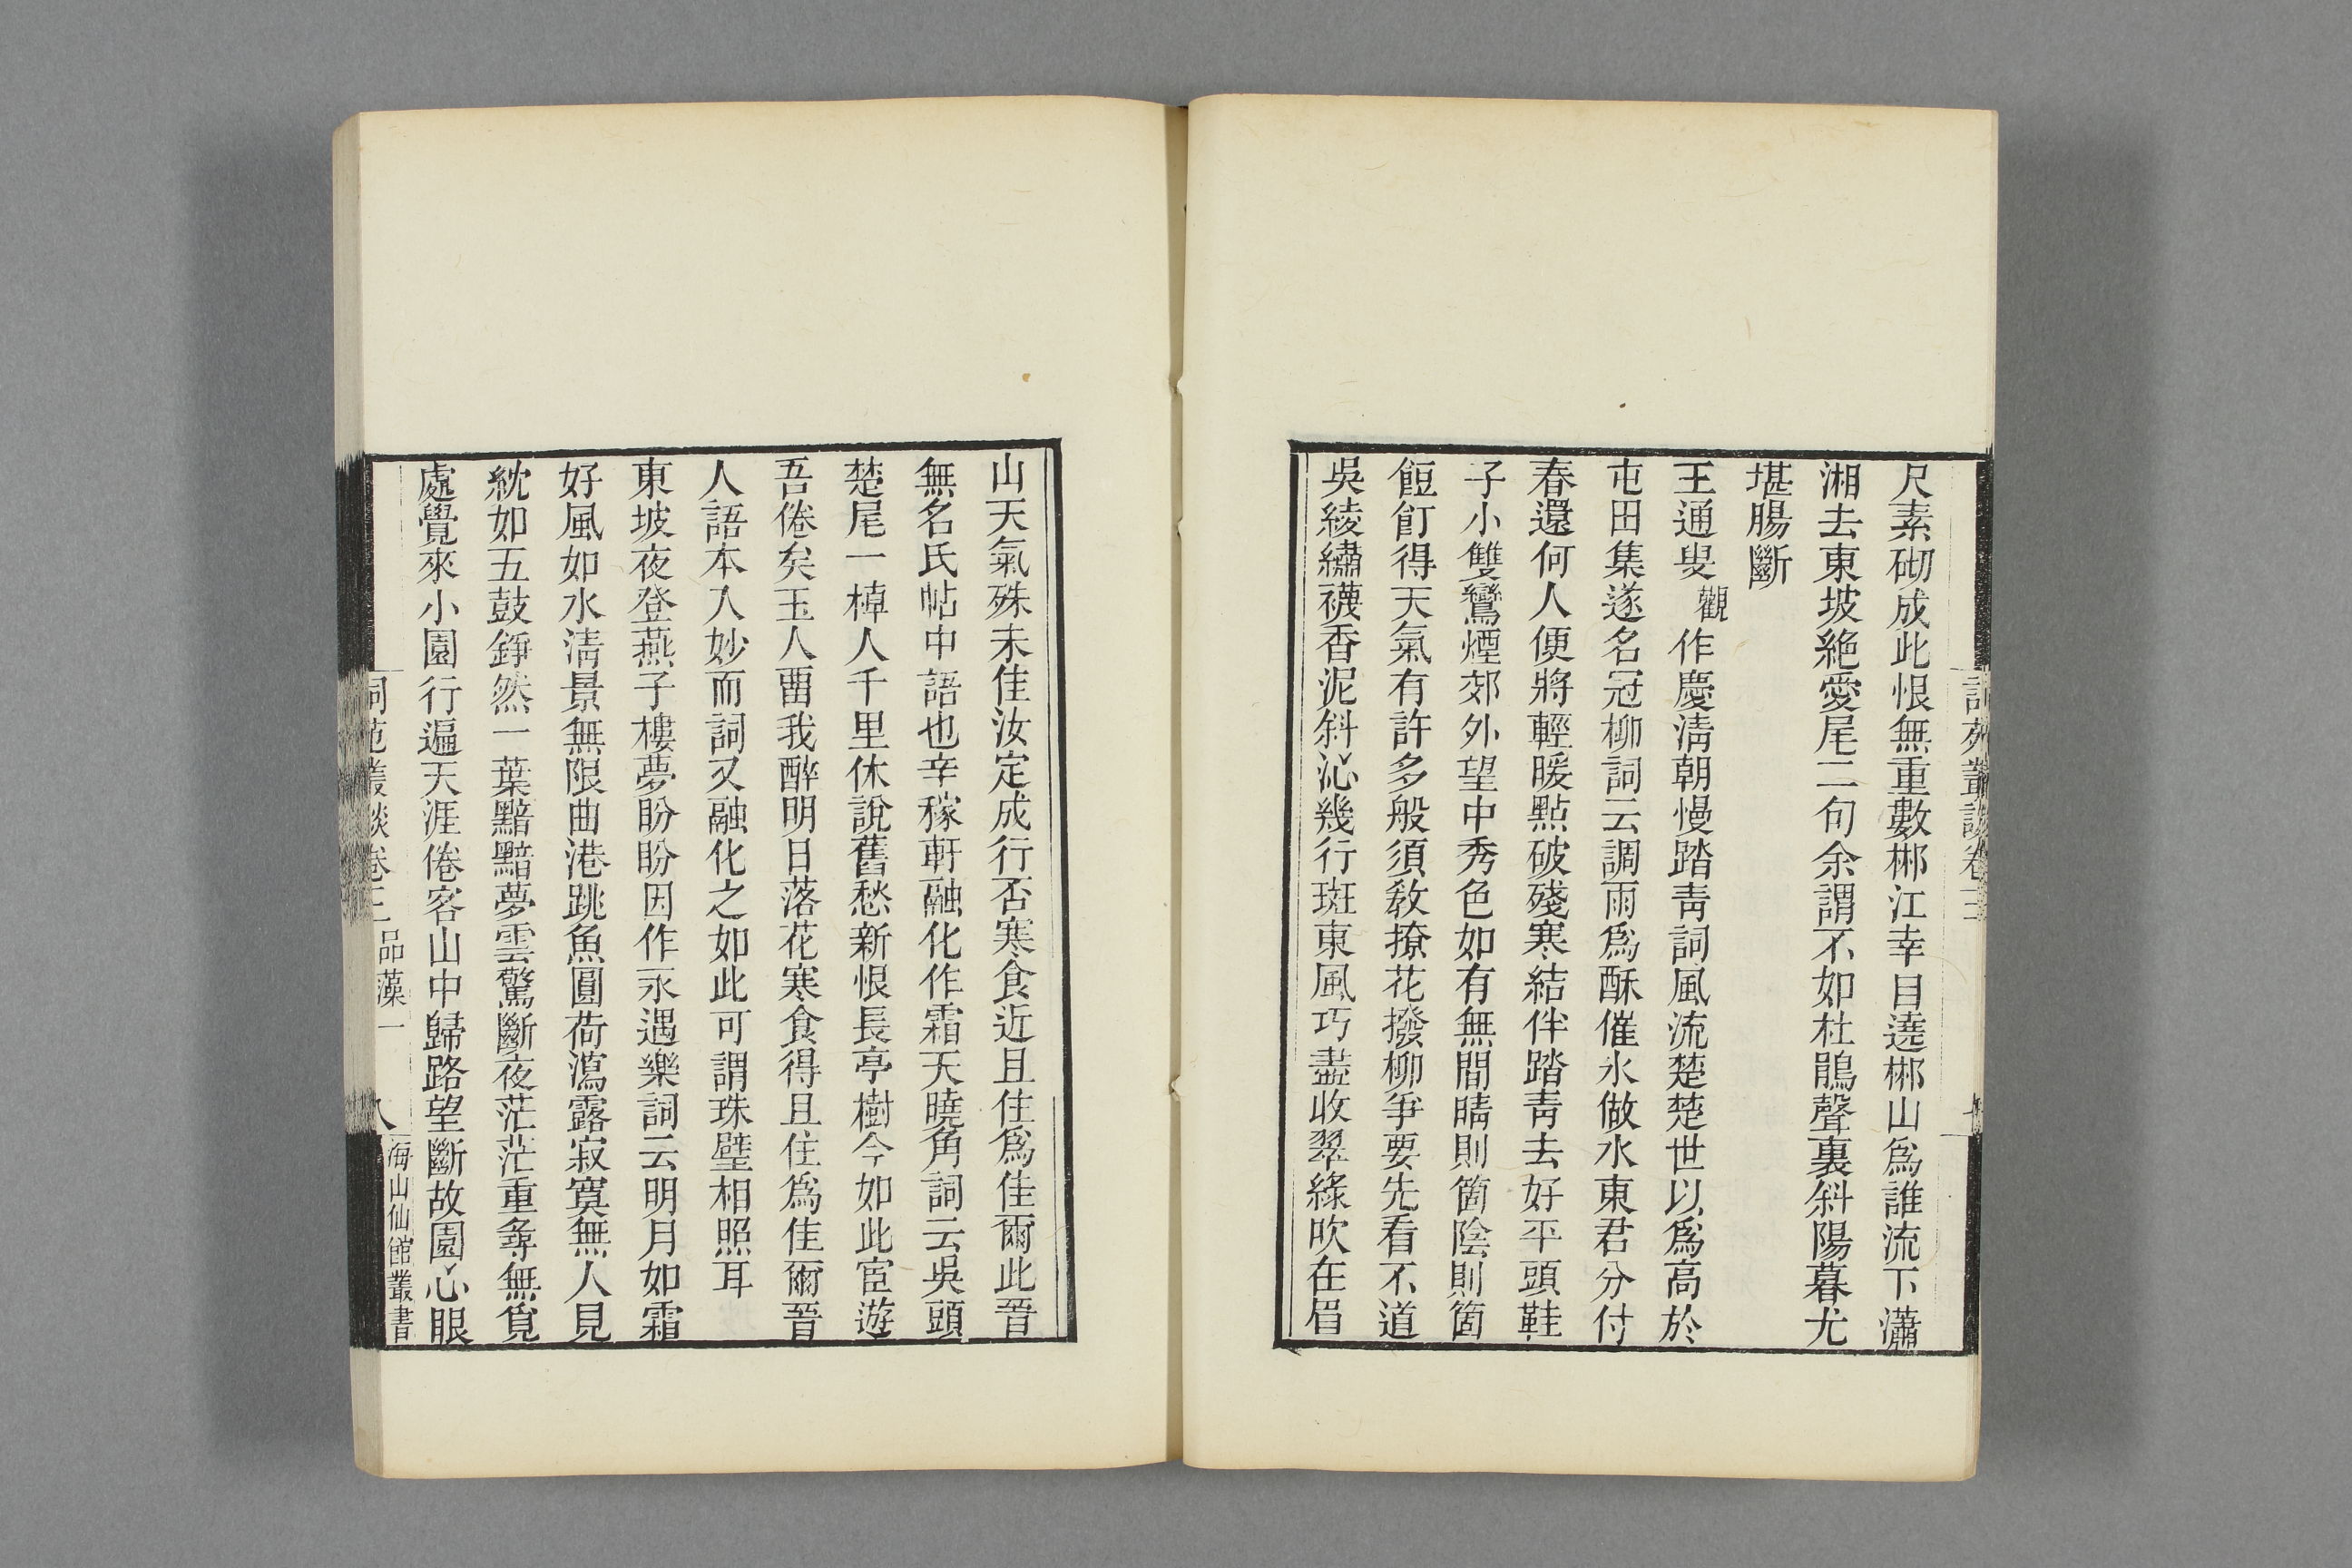 尺素砌成此恨無重數郴江幸自遶郴山爲誰流下瀟
湘去東坡絶愛尾二句余謂不如杜鵑聲裏斜陽暮尤
堪腸斷
王通叟觀作慶淸朝慢踏靑詞風流楚楚世以爲高於
屯田集遂名冠柳詞云調雨爲酥催氷做水東君分付
春還何人便將輕暖點破殘寒結伴踏靑去好平頭鞋
子小雙鸞煙郊外望中秀色如有無間晴則箇陰則箇
餖飣得天氣有許多般須敎撩花撥柳爭要先看不道
吳綾繡襪香泥斜沁幾行斑東風巧盡收翠綠吹在眉
山天氣殊未佳汝定成行否寒食近且住爲佳爾此晉
無名氏帖中語也辛稼軒融化作霜天曉角詞云吳頭
楚尾一棹人千里休說舊愁新恨長亭樹今如此宦遊
吾倦矣玉人畱我醉明日落花寒食得且住爲佳爾晉
人語本入妙而詞又融化之如此可謂珠璧相照耳
東坡夜登燕子樓夢盼盼因作永遇樂詞云明月如霜
好風如水淸景無限曲港跳魚圓荷瀉露寂寞無人見
紞如五鼓錚然一葉黯黯夢雲驚斷夜茫茫重尋無覓
處覺來小園行遍天涯倦客山中歸路望斷故園心眼
詞苑叢談卷三 品藻一 八 海山仙館叢書